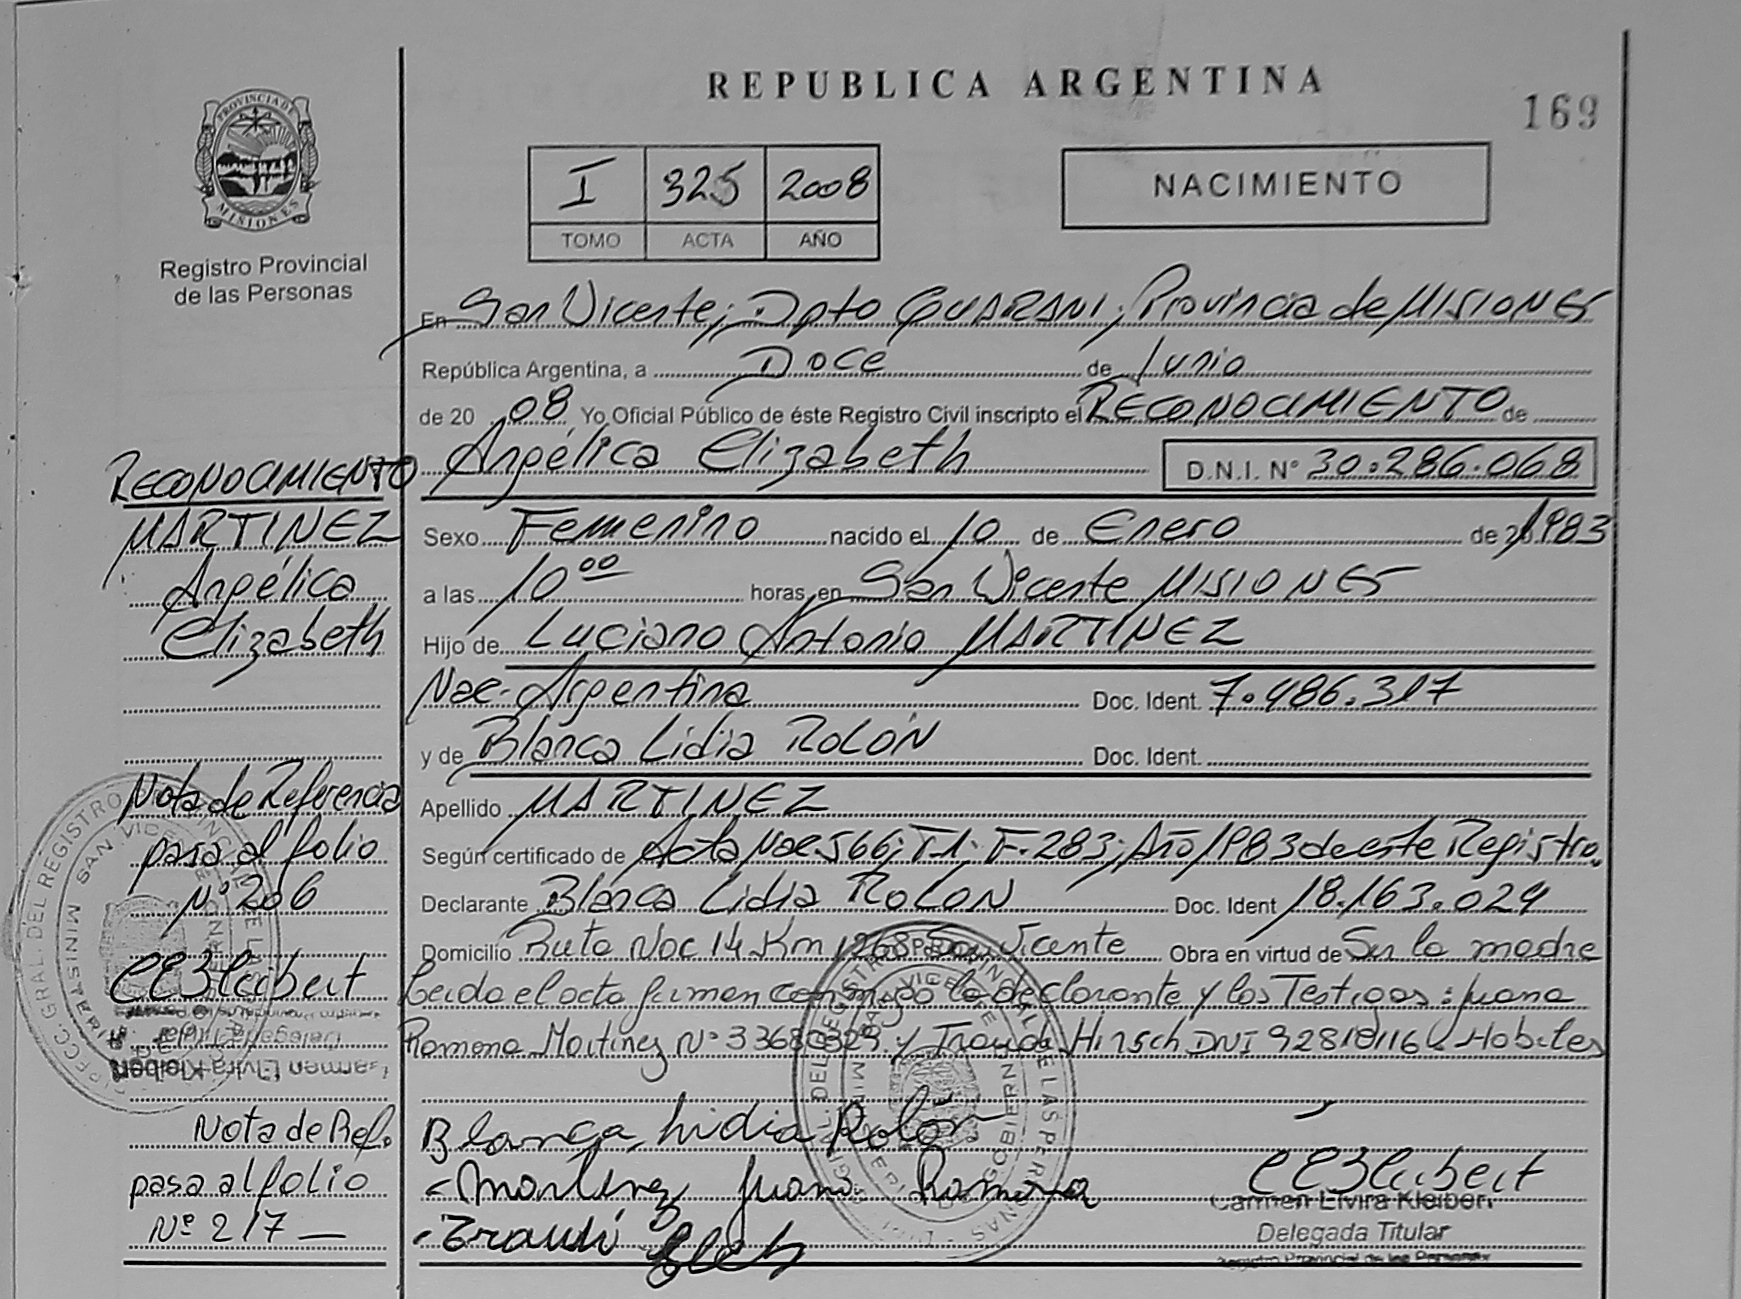 REPUBLICA ARGENTINA
169
PROVINCIA DE MISIONES
Registro Provincial
de las Personas
I 325 2008
TOMO ACTA AÑO
NACIMIENTO
En San Vicente; Dpto GUARANI; Provincia de MISIONES
República Argentina, a Doce de Junio
de 20 08 Yo Oficial Público de éste Registro Civil inscripto el RECONOCIMIENTO de
Angélica Elizabeth D.N.I. N° 30.286.068
Sexo Femenino nacido el 10 de Enero de 1983
a las 10 00 horas, en San Vicente MISIONES
Hijo de Luciano Antonio MARTINEZ
Nac. Argentina Doc. Ident. 7.486.317
y de Blanca Lidia ROLÓN Doc. Ident.
Apellido MARTINEZ
Según certificado de Acta Nac. 566; T.I; F. 283; Año 1983 de este Registro.
Declarante Blanca Lidia ROLON Doc. Ident 18.163.029
Domicilio Ruta Nac 14 Km 1268 San Vicente Obra en virtud de Ser la madre
Leido el acta firman conmigo la declarante y los Testigos: Juana
Ramona Martinez N° Hirsch DNI Habiles
Blanca Lidia Rolón
Martinez Juana Ramona
Carmen Elvira Kleibert
Delegada Titular
Registro Provincial de las Personas
RECONOCIMIENTO
MARTINEZ
Angélica
Elizabeth
Nota de Referencia
pasa al folio
N° 206
Delegada Titular
Carmen Elvira Kleibert
Nota de Ref.
pasa al folio
N° 217